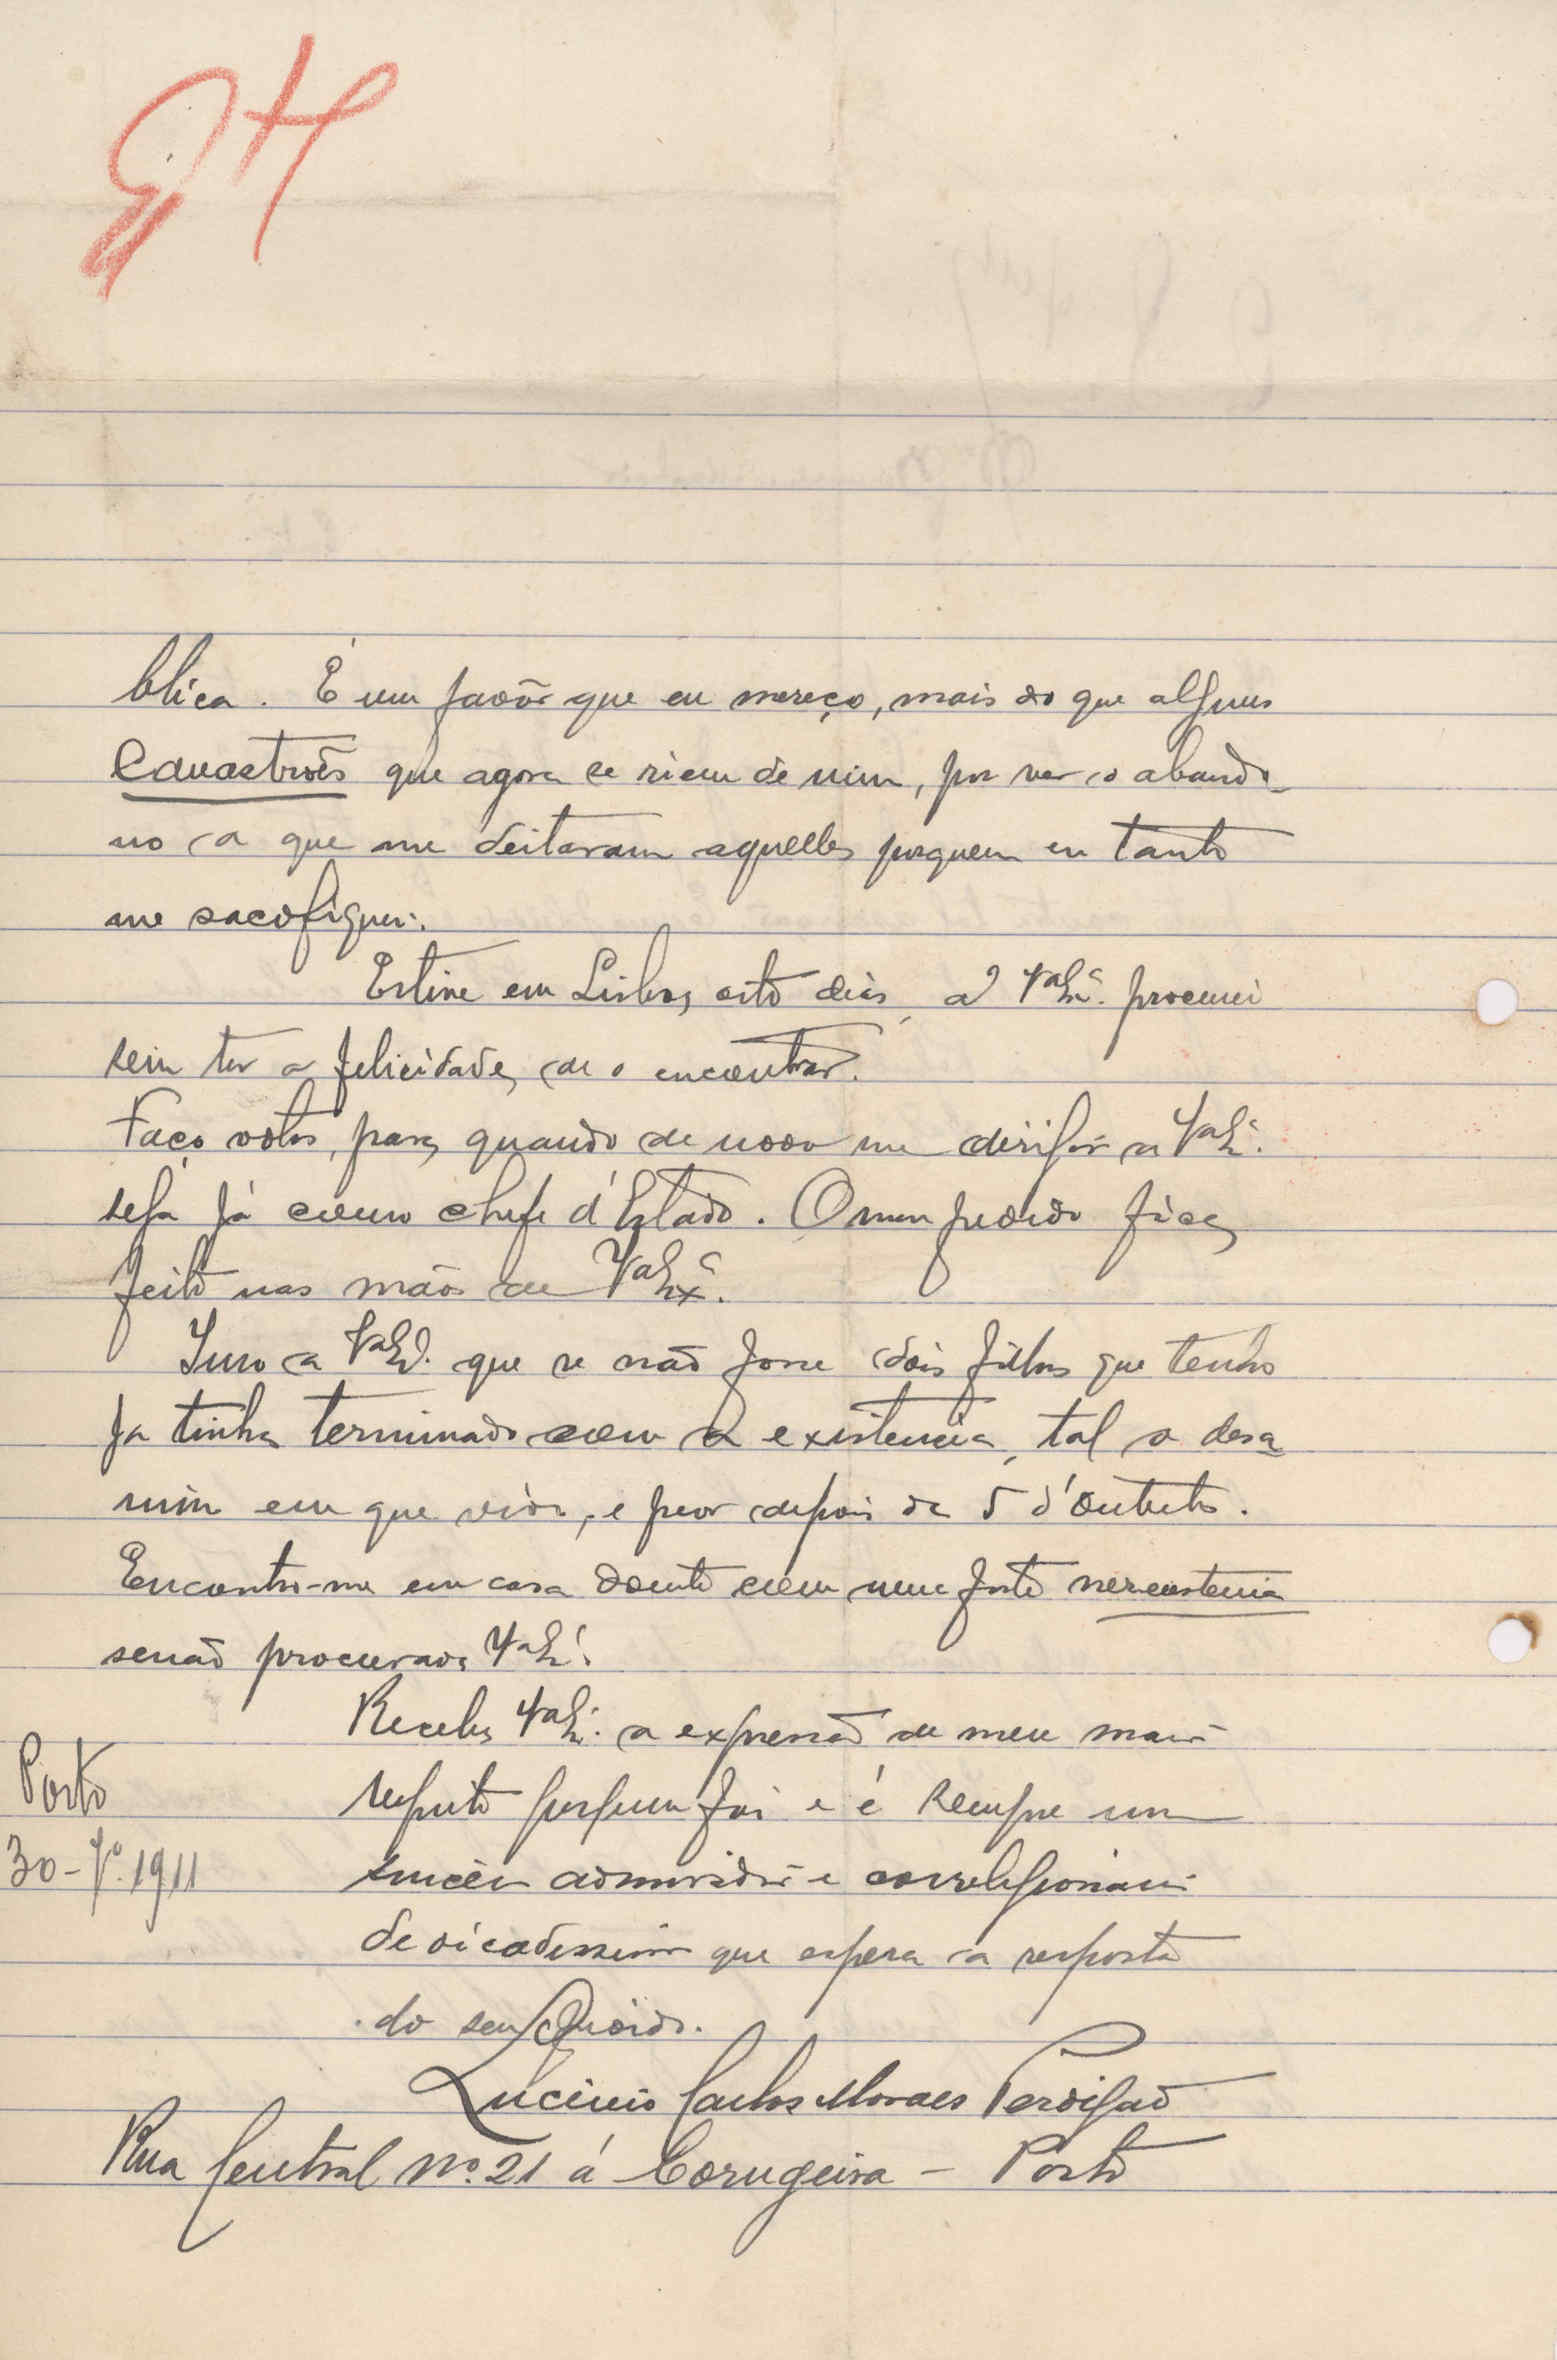 blica. É um favôr que eu mereço, mais do que alguns
Canastrões que agora se riem de mim, por ver o abando-
no a que me deitaram aquelles porquem eu tanto
me sacrofiquei.
Estive em Lisboa, oito dias, a Vª Exª. procurei
sem ter a felicidade, de o encontrar.
Faço votos, para, quando de novo me dirigir a Vª Exª.
seja já como chefe d'Estado. O meu pedido fica,
feito nas mãos de Vª Exª.
Juro a Vª Exª. que se não fosse dois filhos que tenho
ja tinha terminado com a existencia, tal o desa
nimo em que vivo, e peor depois de 5 d'Outubro.
Encontro-me em casa doente com uma forte nerenstenia
senão procurava Vª Exª.
Receba Vª Exª. a expressão de meu maior
respeito porquem foi e é sempre um
sincéro admirador e correlegionario
dedicadissimo que espera a resposta
do seu pedido.
Lucinio Carlos Moraes Perdigão
Rua Central Nº 21 á Corugeira - Porto
Porto
30-7º.1911